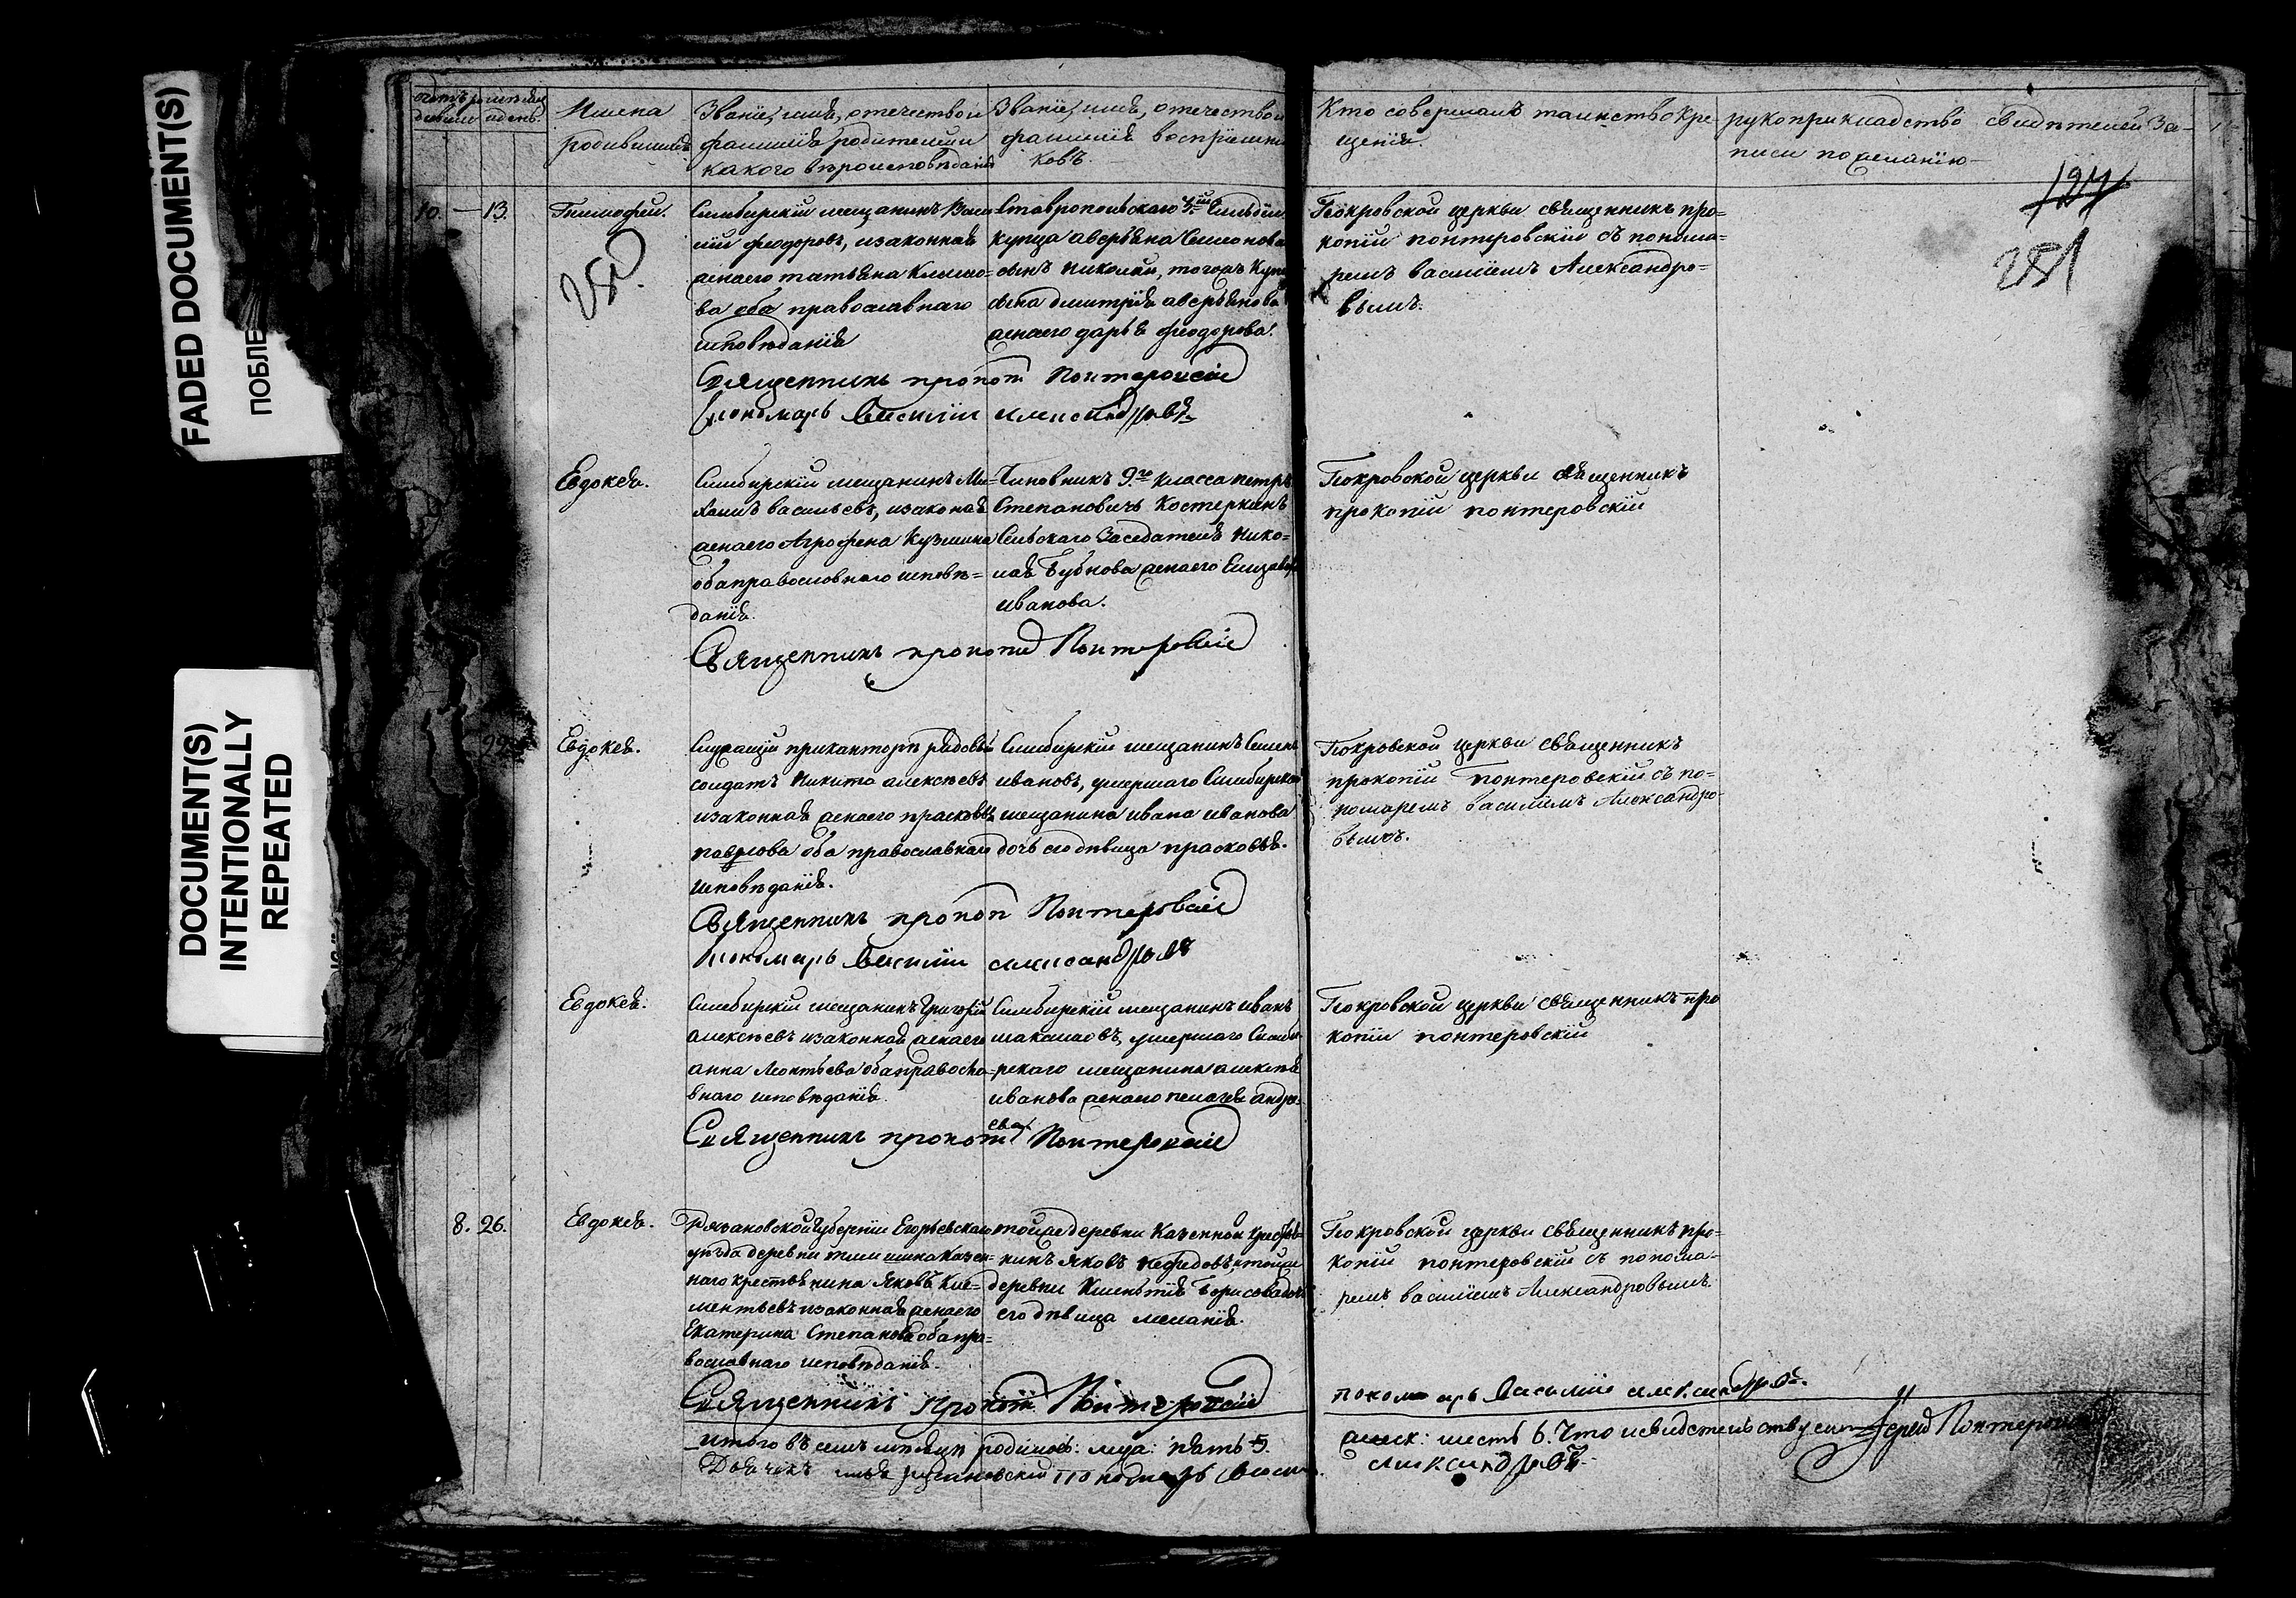 FADED DOCUMENT(S)
ПОБЛЕ
DOCUMENT(S)
INTENTIONALLY
REPEATED
Имена
родившихся
Званіе, имя, отчество и
фамилія родителей и
какого вѣроисповѣданія
Званіе, имя, отчество и
фамилія воспріемни
ковъ.
Кто совершалъ таинство кре
щенія.
рукоприкладство свидѣтелей за-
писи по желанію
124
251
10. — 13.
Тимофей.
250
Симбирскій мещанинъ Васи
лій феодоровъ, изаконная
женаего татьяна Климо-
ва оба православнаго
исповѣданія
Ставропольскаго 3й Гильдіи
купца аверьяна Симонова
сынъ николай, тогожъ Купца
сына димитрія аверьянова
женаего дарья феодорова.
Покровской церкви священникъ про=
копій понтеровскій съ понома=
ремъ василіемъ Александро=
вымъ.
Священникъ прокопій Понтеровскій
Пономарь Василій александровъ
Евдокея.
Симбирскій мещанинъ Ми-
хаилъ васильевъ, изаконая
женаего Агрофена Кузмина
обаправославнаго исповѣ=
данія.
Чиновникъ 9го класса петръ
Степановичь Костеркинъ
Сельскаго Заседателя Нико=
лая Бубнова женаего Елизавѣта
иванова.
Покровской церкви священникъ
прокопій понтеровскій
Священникъ прокопій Понтеровскій
22
Евдокея.
Служащій приконторѣ рядовой
солдатъ Никита алексѣевъ
изаконная женаего прасковья
павлова оба православнаго
исповѣданія.
Симбирскій мещанинъ Семенъ
ивановъ, умершаго Симбирскаго
мещанина ивана иванова
дочь его дѣвица прасковья.
Покровской церкви священникъ
прокопій Понтеровскій съ по=
номаремъ василіемъ Александро-
вымъ.
Священникъ прокопій Понтеровскій
Пономарь Василій александровъ
Евдокея.
Симбирскій мещанинъ Григорій
алексѣевъ изаконная женаего
анна Леонтьева обаправосла-
внаго исповѣданія.
Симбирскій мещанинъ иванъ
максимовъ, умершаго Симби-
рскаго мещанина алексѣя
иванова женаего пелагея андре-
ева.
Покровской церкви священникъ про
копій понтеровскій
Священникъ прокопій Понтеровскій
8. 26.
Евдокея.
Рязановской Губерніи Егорьевскаго
уѣзда деревни казен=
наго крестьянина Яковъ Кле=
ментьевъ изаконная женаего
Екатерина Степанова оба пра=
вославнаго исповѣданія.
тойже деревни Казенной крестья=
нинъ Яковъ нефедовъ, тойже
деревни Борисова дочь
его дѣвица меланія.
Покровской церкви священникъ про=
копій понтеровскій съ понома=
ремъ василіемъ Александровымъ.
Священникъ Прокопій Понтеровскій
пономарь Василій александровъ.
итого въ семъ мѣсяцѣ родилось: муж: пять 5.
женск: шесть 6. Что и свидетельствуемъ Іерей Понтеровскій
Дьячекъ илья пономарь Василій
александровъ.